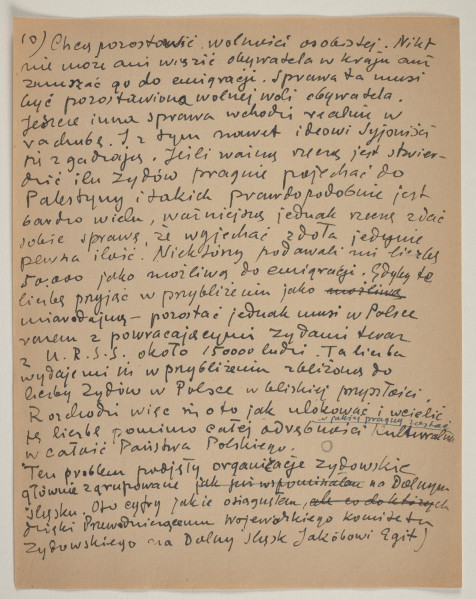 10) Chcę pozostawić wolności osobistej. Nikt
nie może ani więzić obywatela w kraju ani
zmuszać go do emigracji. Sprawa ta musi
być pozostawiona wolnej woli obywatela.
Jeszcze inna sprawa wchodzi realnie w
rachubę. I z tym nawet ideowi Syjoniści
się zgadzają. Jeśli ważną rzeczą jest stwier-
dzić ilu Żydów pragnie pojechać do
Palestyny i takich prawdopodobnie jest
bardzo wielu, ważniejszą jednak rzeczą zdać
sobie sprawę, że wyjechać zdoła jedynie
pewna ilość. Niektórzy podawali mi liczbę
50.000 jako możliwą do emigracji. Gdyby tę
liczbę przyjąć w przybliżeniu jako możliwą
miarodajną – pozostać jednak musi w Polsce
razem z powracającymi Żydami teraz
z U.R.S.S. około 150000 ludzi. Ta liczba
wydaje mi się w przybliżeniu zbliżoną do
liczby Żydów w Polsce w bliskiej przyszłości.
Rozchodzi więc się oto jak ulokować i wcielić
tę liczbę pomimo całej odrębności kulturalnej w jakiej pragną zostać
w całość Państwa Polskiego.
Ten problem podjęły organizacje żydowskie
głównie zgrupowane jak już wspomniałem na Dolnym
Śląsku. Oto cyfry jakie osiągnąłem, ale co do których
dzięki Przewodniczącemu wojewódzkiego komitetu
Żydowskiego na Dolny Śląsk Jakóbowi Egit)